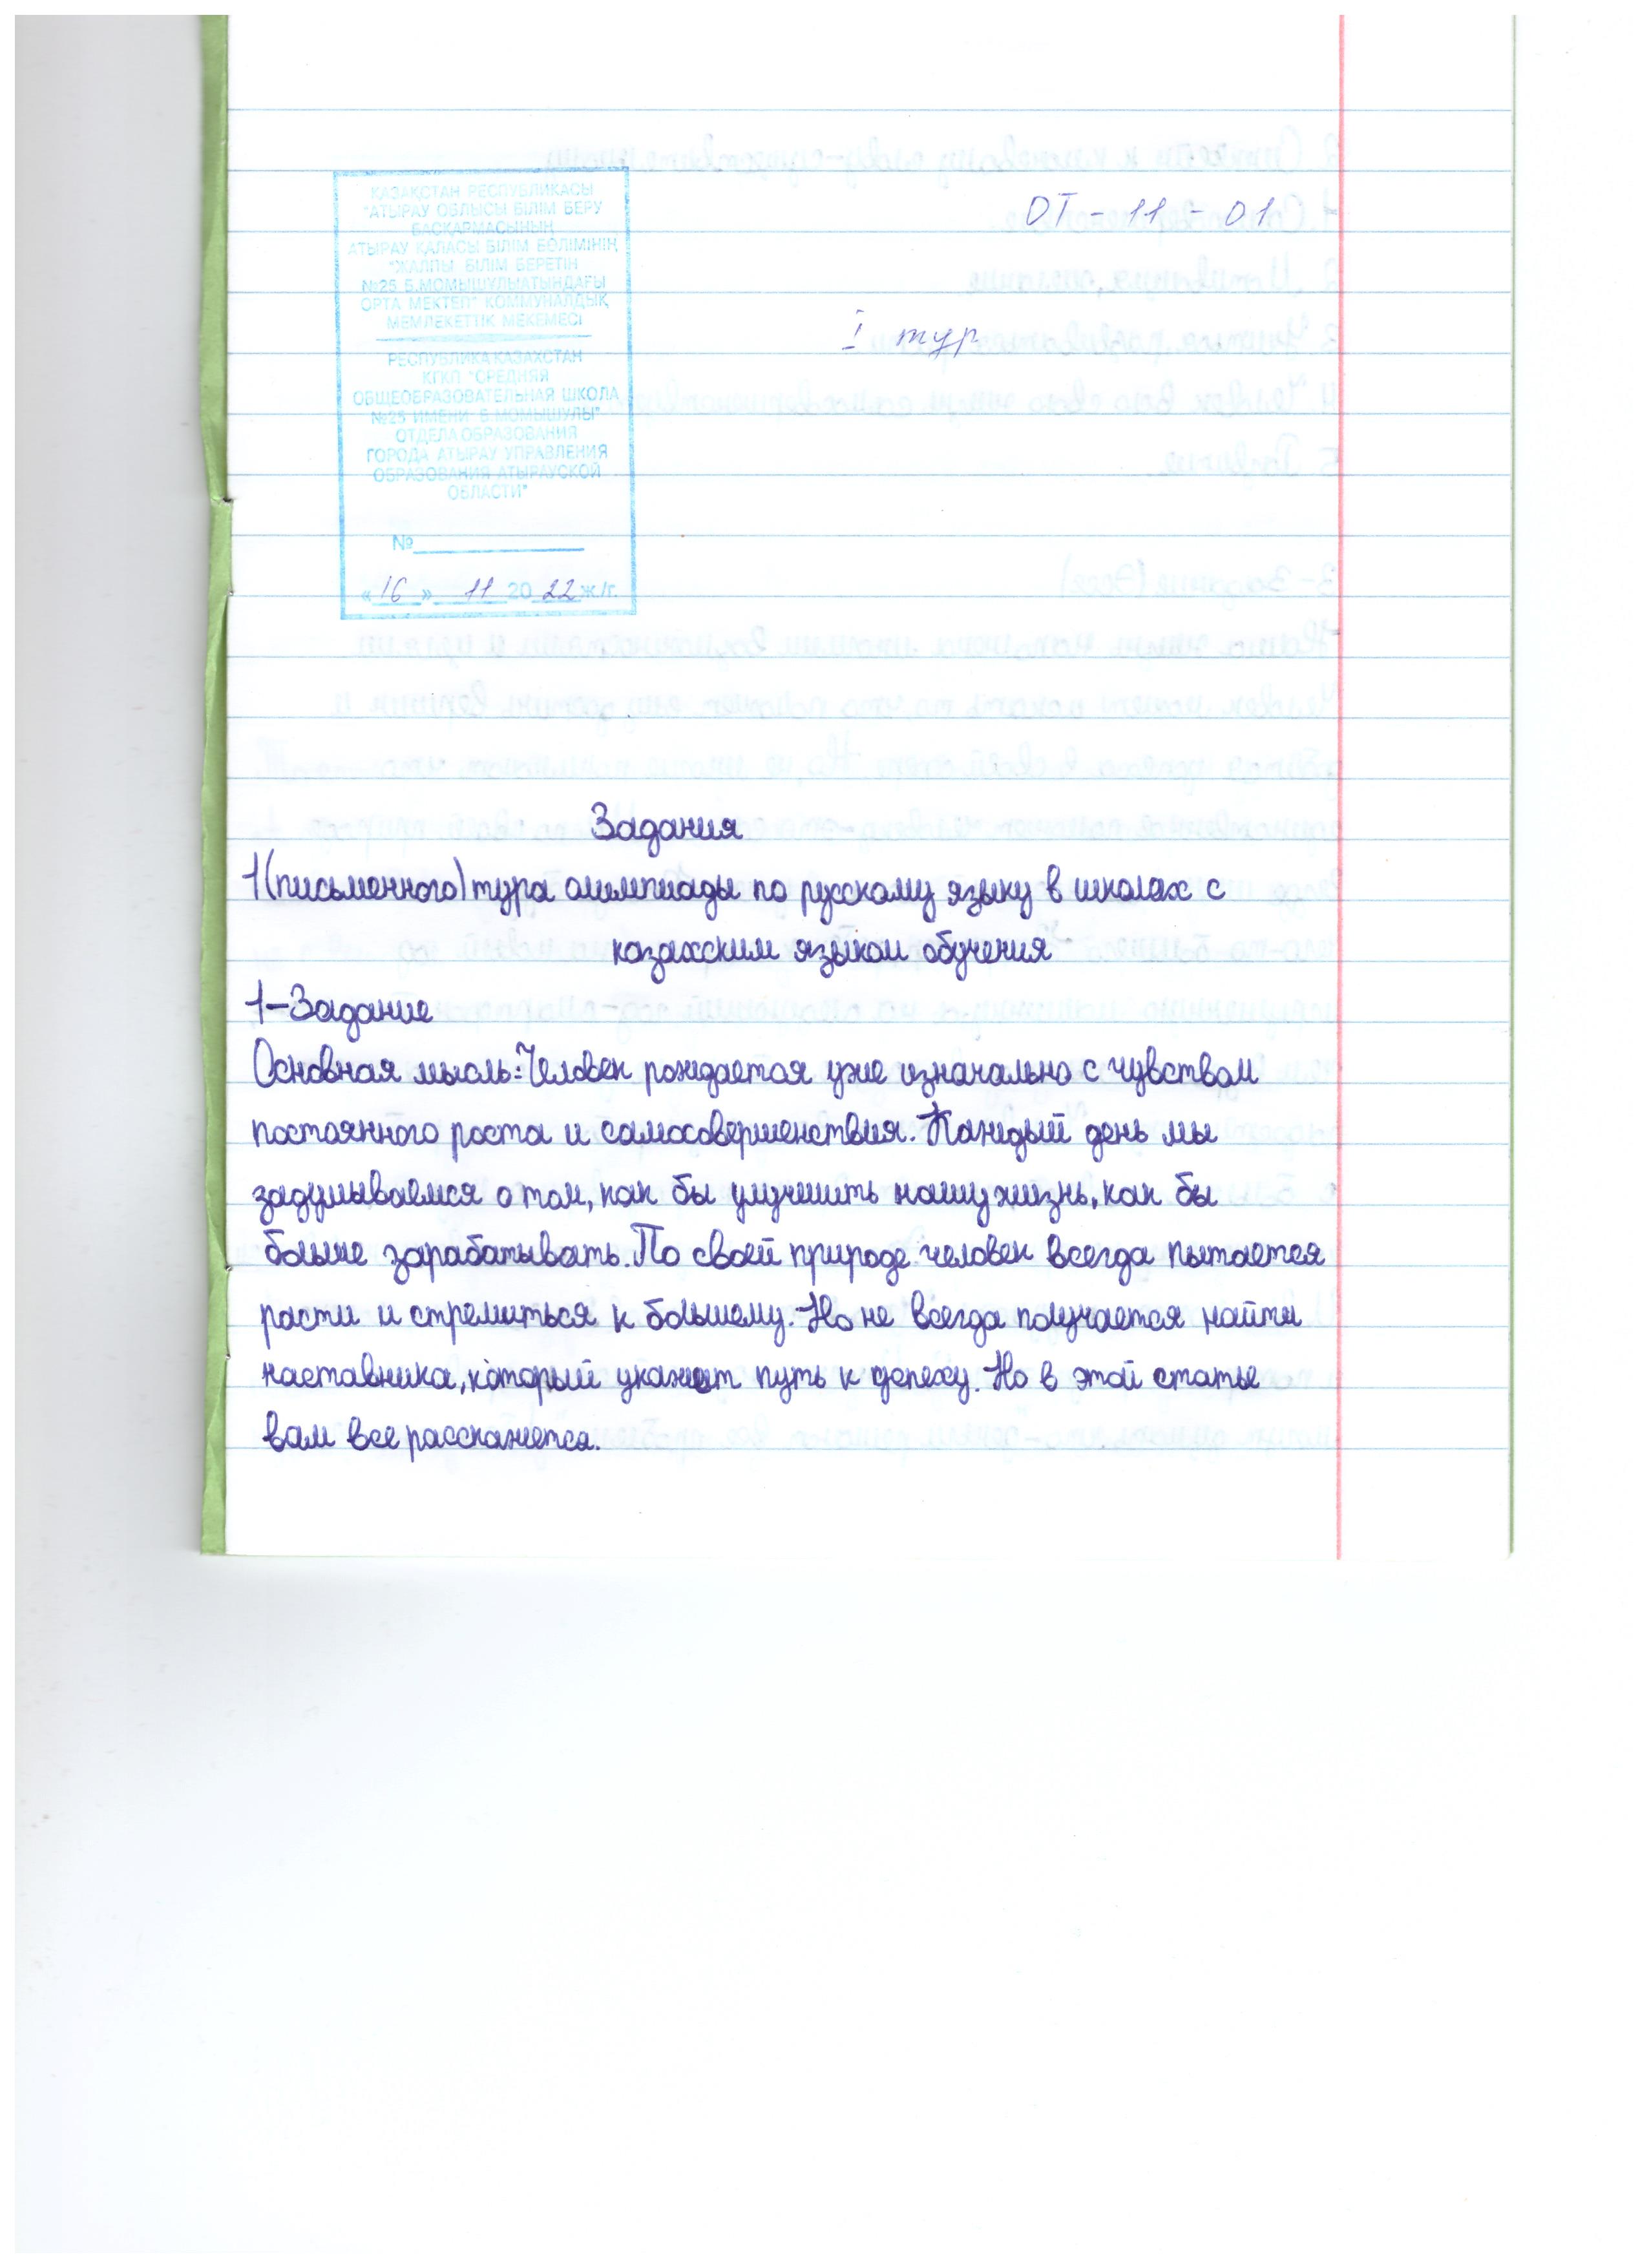 ҚАЗАҚСТАН РЕСПУБЛИКАСЫ
"АТЫРАУ ОБЛЫСЫ БІЛІМ БЕРУ
БАСҚАРМАСЫНЫҢ
АТЫРАУ ҚАЛАСЫ БІЛІМ БӨЛІМІНІҢ
"ЖАЛПЫ БІЛІМ БЕРЕТІН
№25 Б.МОМЫШҰЛЫАТЫНДАҒЫ
ОРТА МЕКТЕП" КОММУНАЛДЫҚ
МЕМЛЕКЕТТІК МЕКЕМЕСІ
РЕСПУБЛИКА КАЗАХСТАН
КГКП "СРЕДНЯЯ
ОБЩЕОБРАЗОВАТЕЛЬНАЯ ШКОЛА
№25 ИМЕНИ Б.МОМЫШУЛЫ"
ОТДЕЛА ОБРАЗОВАНИЯ
ГОРОДА АТЫРАУ УПРАВЛЕНИЯ
ОБРАЗОВАНИЯ АТЫРАУСКОЙ
ОБЛАСТИ"
№
«16» 11 2022 ж./г.
ОТ - 11 - 01
I тур
Задания
1(письменного) тура олимпиады по русскому языку в школах с
казахским языком обучения
1-Задание
Основная мысль: Человек рождается уже изначально с чувством
постоянного роста и самосовершенствия. Каждый день мы
задумываемся о том, как бы улучшить нашу жизнь, как бы
больше зарабатывать. По своей природе человек всегда пытается
расти и стремиться к большему. Но не всегда получается найти
наставника, который укажет путь к успеху. Но в этой статье
вам все расскажется.